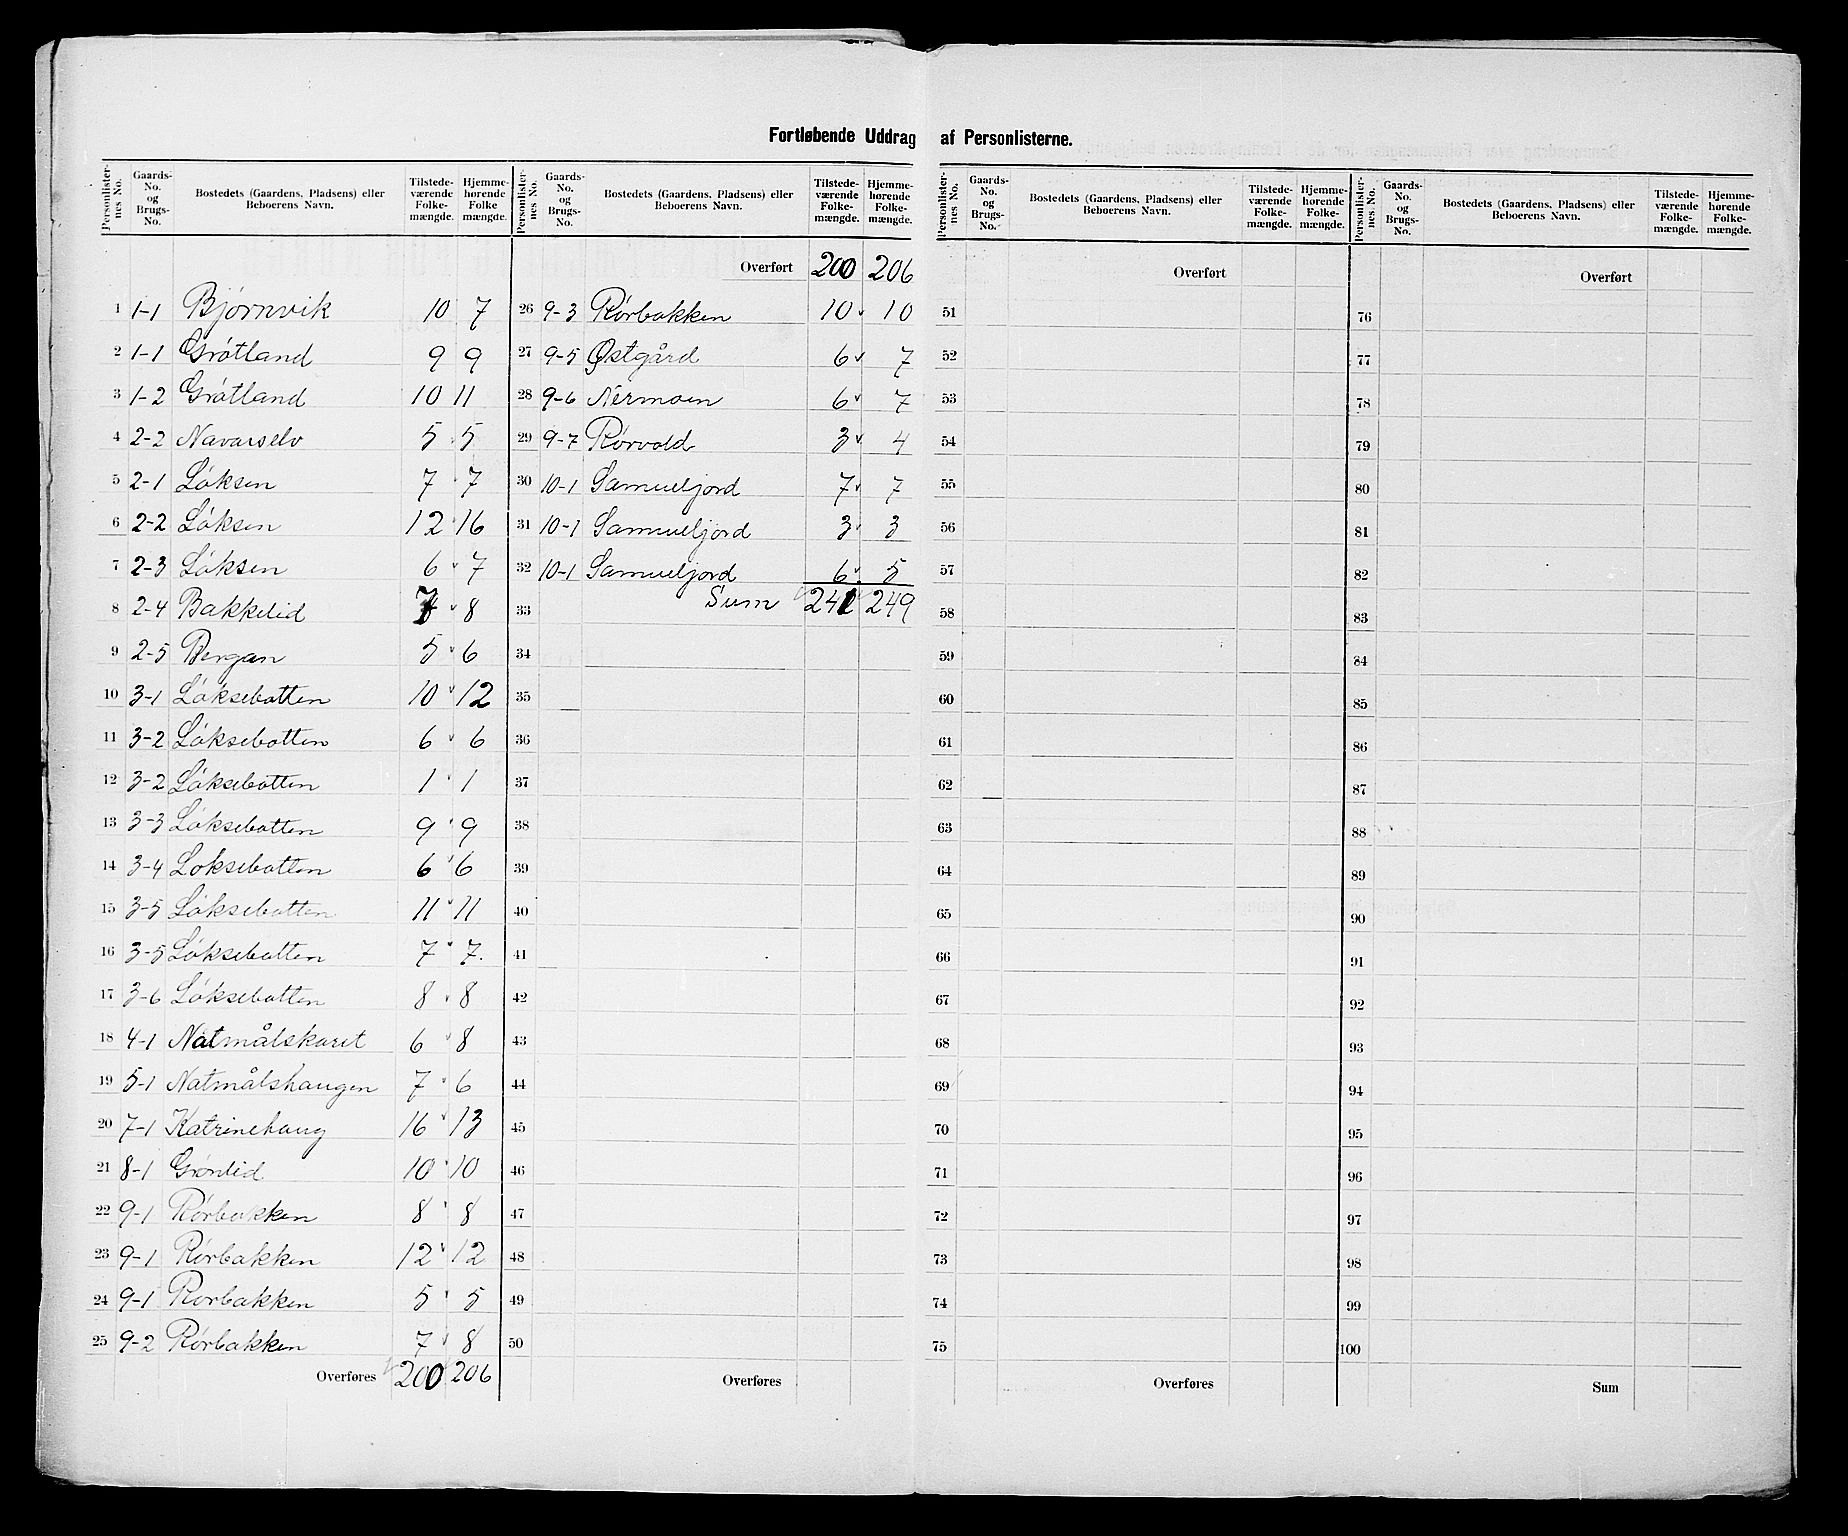 Fortløbende Uddrag af Personlisterne.
Personlister-nes No. Gaards-No. og Brugs-No. Bostedets (Gaardens, Pladsens) eller Beboerens Navn. Tilstede-værende Folke-mængde. Hjemme-hørende Folke mængde.
1 1-1 Bjørnvik 10 7
2 1-1 Grøtland 9 9
3 1-2 Grøtland 10 11
4 2-2 Navarselv 5 5
5 2-1 Løksen 7 7
6 2-2 Løksen 12 16
7 2-3 Løksen 6 7
8 2-4 Bakkelid 7 8
9 2-5 Bergan 5 6
10 3-1 Løksebotten 10 12
11 3-2 Løksebotten 6 6
12 3-2 Løksebotten 1 1
13 3-3 Løksebotten 9 9
14 3-4 Loksebotten 6 6
15 3-5 Løksebotten 11 11
16 3-5 Løksebotten 7 7.
17 3-6 Løksebotten 8 8
18 4-1 Natmålskaret 6 8
19 5-1 Natmålshaugen 7 6
20 7-1 Katrinehaug 16 13
21 8-1 Grønlid 10 10
22 9-1 Rørbakken 8 8
23 9-1 Rørbakken 12 12
24 9-1 Rørbakken 5 5
25 9-2 Rørbakken 7 8
Overføres 200 206
Personlister-nes No. Gaards-No. og Brugs-No. Bostedets (Gaardens, Pladsens) eller Beboerens Navn. Tilstede-værende Folke-mængde. Hjemme-hørende Folke-mængde.
Overført 200 206
26 9-3 Rørbakken 10 10
27 9-5 Østgård 6 7
28 9-6 Nermoen 6 7
29 9-7 Rørvold 3 4
30 10-1 Samueljord 7 7
31 10-1 Samueljord 3 3
32 10-1 Samueljord 6 5
33 Sum 241 249
34
35
36
37
38
39
40
41
42
43
44
45
46
47
48
49
50
Overføres
Personlister-nes No. Gaards-No. og Brugs-No. Bostedets (Gaardens, Pladsens) eller Beboerens Navn. Tilstede-værende Folke-mængde. Hjemme-hørende Folke-mængde.
Overført
51
52
53
54
55
56
57
58
59
60
61
62
63
64
65
66
67
68
69
70
71
72
73
74
75
Overføres
Personlister-nes No. Gaards-No. og Brugs-No. Bostedets (Gaardens, Pladsens) eller Beboerens Navn. Tilstede-værende Folke-mængde. Hjemme-hørende Folke-mængde.
Overført
76
77
78
79
80
81
82
83
84
85
86
87
88
89
90
91
92
93
94
95
96
97
98
99
100
Sum